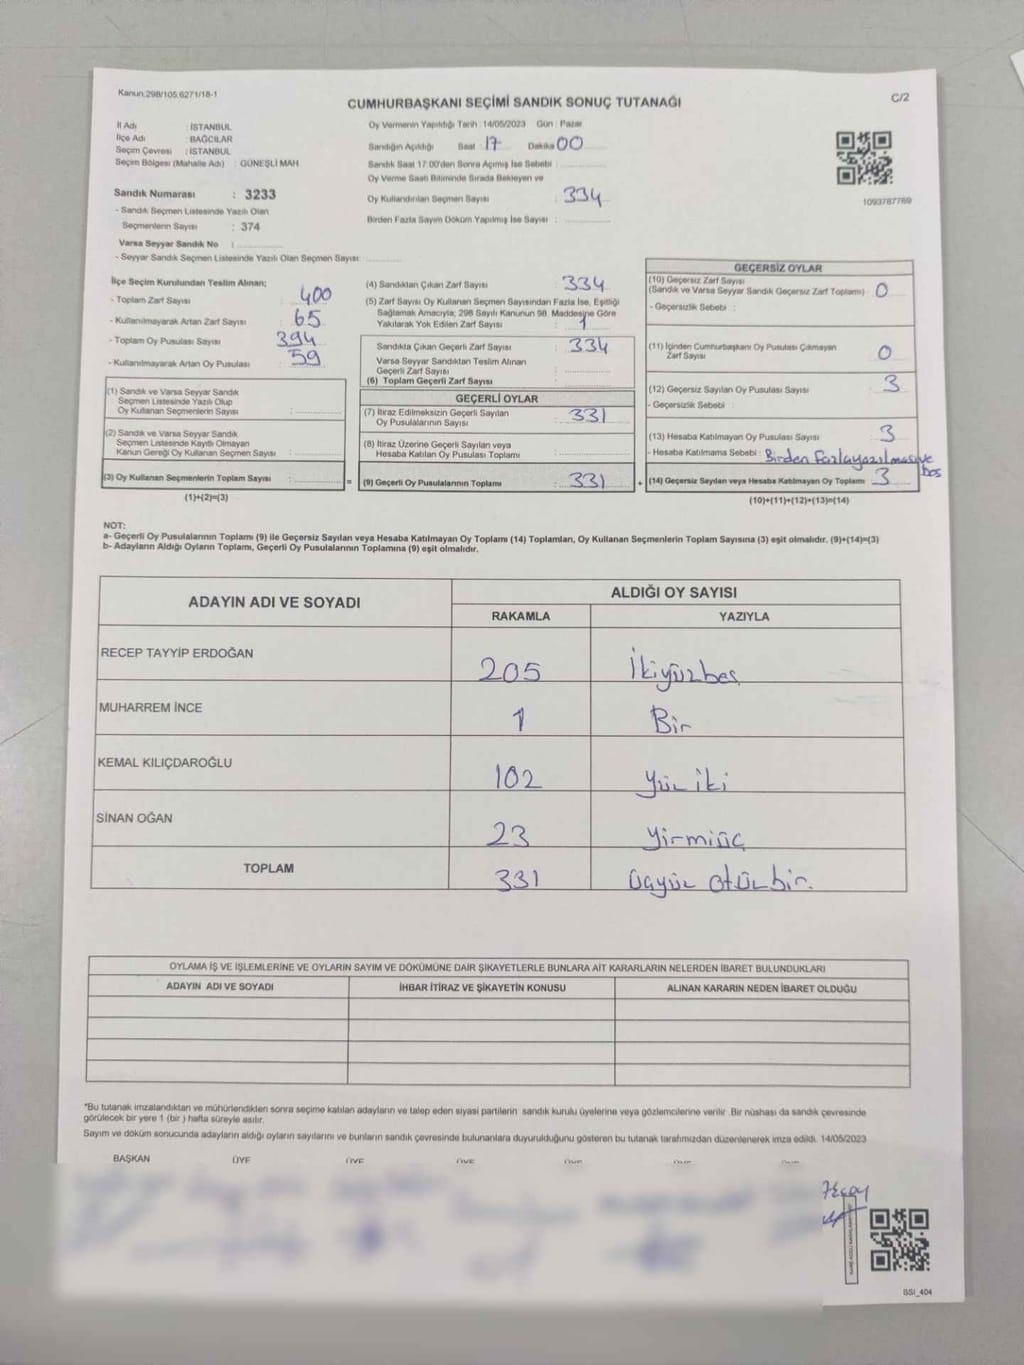 Kanun.298/105,6271/18-1
CUMHURBAŞKANI SEÇİMİ SANDIK SONUÇ TUTANAĞI
C/2
İl Adı : İSTANBUL
İlçe Adı : BAĞCILAR
Seçim Çevresi : İSTANBUL
Seçim Bölgesi (Mahalle Adı) : GÜNEŞLİ MAH.
Sandık Numarası : 3233
- Sandık Seçmen Listesinde Yazılı Olan
Seçmenlerin Sayısı : 374
Varsa Seyyar Sandık No :
- Seyyar Sandık Seçmen Listesinde Yazılı Olan Seçmen Sayısı:
Oy Vermenin Yapıldığı Tarih :14/05/2023 Gün : Pazar
Sandığın Açıldığı Saat : 17 Dakika 00
Sandık Saat 17.00'den Sonra Açılmış İse Sebebi :
Oy Verme Saati Bitiminde Sırada Bekleyen ve
Oy Kullandırılan Seçmen Sayısı : 334
Birden Fazla Sayım Döküm Yapılmış İse Sayısı :
1093787769
İlçe Seçim Kurulundan Teslim Alınan;
- Toplam Zarf Sayısı : 400
- Kullanılmayarak Artan Zarf Sayısı : 65
- Toplam Oy Pusulası Sayısı : 394
- Kullanılmayarak Artan Oy Pusulası : 59
(1) Sandık ve Varsa Seyyar Sandık
Seçmen Listesinde Yazılı Olup
Oy Kullanan Seçmenlerin Sayısı :
(2) Sandık ve Varsa Seyyar Sandık
Seçmen Listesinde Kayıtlı Olmayan
Kanun Gereği Oy Kullanan Seçmen Sayısı :
(3) Oy Kullanan Seçmenlerin Toplam Sayısı : =
(1)+(2)=(3)
(4) Sandıktan Çıkan Zarf Sayısı : 334
(5) Zarf Sayısı Oy Kullanan Seçmen Sayısından Fazla İse, Eşitliği
Sağlamak Amacıyla; 298 Sayılı Kanunun 98. Maddesine Göre
Yakılarak Yok Edilen Zarf Sayısı : 1
Sandıkta Çıkan Geçerli Zarf Sayısı : 334
Varsa Seyyar Sandıktan Teslim Alınan
Geçerli Zarf Sayısı :
(6) Toplam Geçerli Zarf Sayısı :
GEÇERLİ OYLAR
(7) İtiraz Edilmeksizin Geçerli Sayılan
Oy Pusulalarının Sayısı : 331
(8) İtiraz Üzerine Geçerli Sayılan veya
Hesaba Katılan Oy Pusulası Toplamı :
(9) Geçerli Oy Pusulalarının Toplamı : 331 +
GEÇERSİZ OYLAR
(10) Geçersiz Zarf Sayısı
(Sandık ve Varsa Seyyar Sandık Geçersiz Zarf Toplamı) : 0
- Geçersizlik Sebebi :
(11) İçinden Cumhurbaşkanı Oy Pusulası Çıkmayan
Zarf Sayısı : 0
(12) Geçersiz Sayılan Oy Pusulası Sayısı : 3
- Geçersizlik Sebebi :
(13) Hesaba Katılmayan Oy Pusulası Sayısı : 3
- Hesaba Katılmama Sebebi : Birden fazla yazılması ve
boş
(14) Geçersiz Sayılan veya Hesaba Katılmayan Oy Toplamı : 3
(10)+(11)+(12)+(13)=(14)
NOT:
a- Geçerli Oy Pusulalarının Toplamı (9) ile Geçersiz Sayılan veya Hesaba Katılmayan Oy Toplamı (14) Toplamları, Oy Kullanan Seçmenlerin Toplam Sayısına (3) eşit olmalıdır. (9)+(14)=(3)
b- Adayların Aldığı Oyların Toplamı, Geçerli Oy Pusulalarının Toplamına (9) eşit olmalıdır.
ADAYIN ADI VE SOYADI
ALDIĞI OY SAYISI
RAKAMLA YAZIYLA
RECEP TAYYİP ERDOĞAN 205 İkiyüzbeş
MUHARREM İNCE 1 Bir
KEMAL KILIÇDAROĞLU 102 Yüz iki
SİNAN OĞAN 23 Yirmiüç
TOPLAM 331 üçyüz otuz bir.
OYLAMA İŞ VE İŞLEMLERİNE VE OYLARIN SAYIM VE DÖKÜMÜNE DAİR ŞİKAYETLERLE BUNLARA AİT KARARLARIN NELERDEN İBARET BULUNDUKLARI
ADAYIN ADI VE SOYADI İHBAR İTİRAZ VE ŞİKAYETİN KONUSU ALINAN KARARIN NEDEN İBARET OLDUĞU
*Bu tutanak imzalandıktan ve mühürlendikten sonra seçime katılan adayların ve talep eden siyasi partilerin sandık kurulu üyelerine veya gözlemcilerine verilir .Bir nüshası da sandık çevresinde
görülecek bir yere 1 (bir ) hafta süreyle asılır.
Sayım ve döküm sonucunda adayların aldığı oyların sayılarını ve bunların sandık çevresinde bulunanlara duyurulduğunu gösteren bu tutanak tarafımızdan düzenlenerek imza edildi. 14/05/2023
BAŞKAN ÜYE ÜYE ÜYE ÜYE ÜYE ÜYE
SSI_404